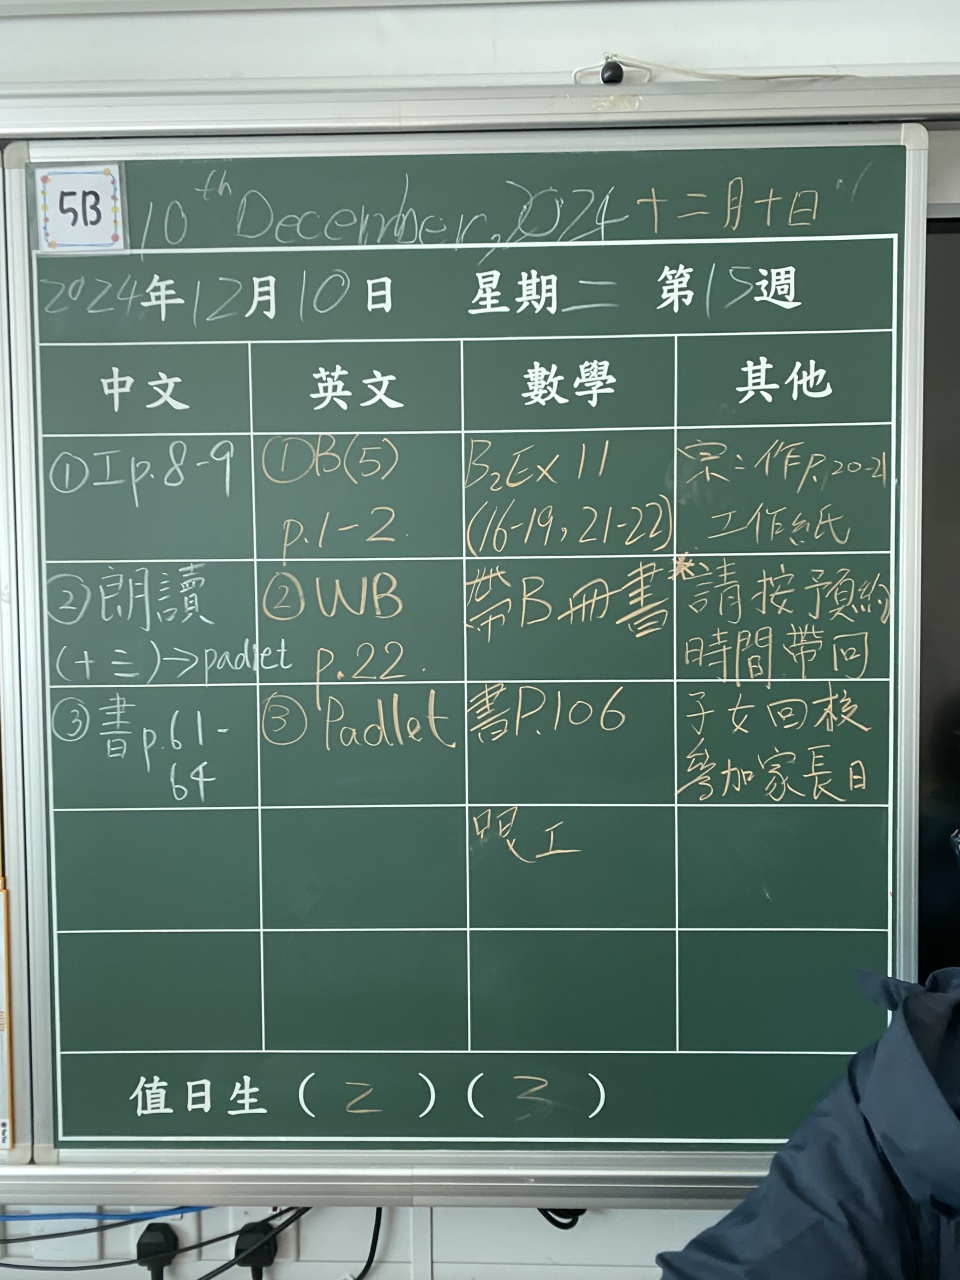 5B
10th December, 2024 十二月十日
2024年12月10日 星期二 第15週
中文 英文 數學 其他
①工p.8-9
①B(5)
p.1-2.
B₂Ex 11
(16-19, 21-22)
宗:作P.20-21
工作紙
②朗讀
(十三)→padlet
②WB
p.22.
帶B冊書
*請按預約
時間帶回
③書p.61-
64
③Padlet
書P.106
子女回校
參加家長日
眼工
值日生(2)(3)